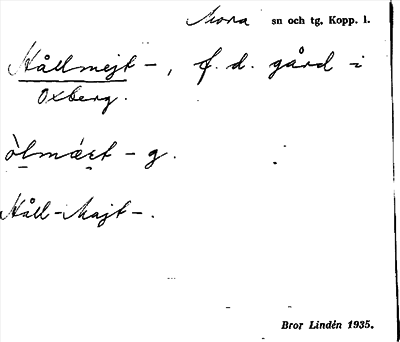 Mora sn och tg, Kopp. l.
Hållmejt-, f. d. gård i
Oxberg.
òlmáet - g.
Håll-Majt-.
Bror Lindén 1935.